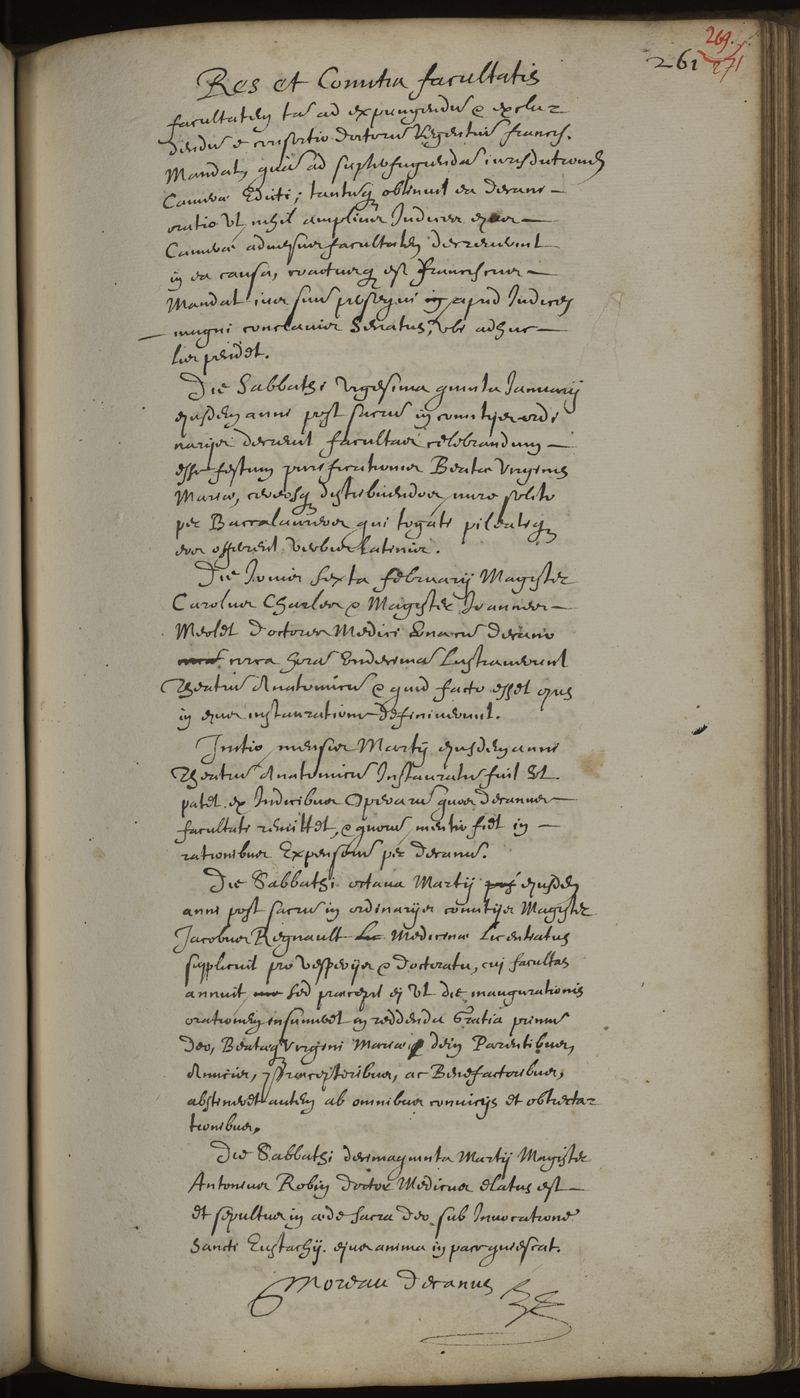 261 269. 271
Res et Comitia facultatis
facultatem tum ad expungendum & exclu=
dendum e consortio doctorum Regentium francis.
Mandat, quam ad subterfugiendam iurisdictionem
Camerae Edicti; tantumq obtinuit ea decani —
oratio ut nihil amplius Iudices —
Camerae adversus facultatem decreverint
in ea causa, coactusq est franciscus —
Mandat ius suum prosequi in apud Iudices
— magni conclavis Senatus, ubi adhuc —
lis pendet.
Die Sabbathi vigesima quinta Januarij
ejusdem anni post sacrum in comitijs ordi
narijs decrevit facultas celebrandum —
esse festum purificationis Beatae Virginis
Mariae, cereosq distribuendos more solito
per Baccalaureos qui togati pileatiq
eos offerent verbis latinis.
Die Jovis sexta februarij Magister
Carolus Charles & Magister Joannes —
Merlet doctores Medici una cum decano
circa horam undecimam lustraverunt
Theatrum Anatomicum & quid facto esset opus
in ejus instauratione definiverunt.
Initio mensis Martij ejusdem anni
Theatrum Anatomicum Instauratum fuit Ut
patet ex Indicibus Operarum quos decanus —
facultati remittet, & quorum mentio fiet in —
rationibus Expensarum per decanum.
Die Sabbathi octava Martij post ejusdem
anni post sacrum in ordinarijs comitijs Magister
Jacobus Regnault Lic Medicinae Licentiatus
supplicuit pro vesperijs & doctoratu, cui facultas
annuit, sed praecepit ei Ut die inaugurationis
orationem insumeret in reddenda Gratia primum
deo, Beataeq Virgini Mariae, dein Parentibus,
Amicis, & Praeceptoribus, ac Benefactoribus,
abstineret autem ab omnibus convicijs et obtrecta=
tionibus.
Die Sabbathi decimaquinta Martij Magister
Antonius Robin doctor Medicus elatus est —
et sepultus in aede sacra deo sub Invocatione
Sancti Eustachij. ejus anima in pace quiescat.
Moreau decanus